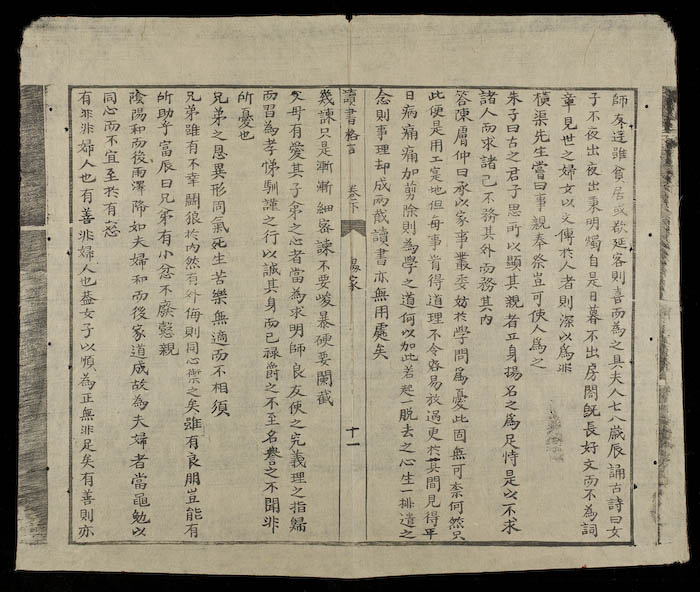 師友逕雖貧居或欲延客則喜而為之具夫人七八歲辰誦古詩曰女
子不夜出夜出秉明燭自是日暮不出房閤旣長好文而不為詞
章見世之婦女以文傳於人者則深以為非
橫渠先生嘗曰事親奉祭豈可使人為之
朱子曰古之君子思所以顯其親者立身揚名之為足恃是以不求
諸人而求諸己不務其外而務其內
答陳膚仲曰承以家事叢委妨於學問為憂此固無可柰何然只
此便是用工寔地但每事肯得道理不令容易放過更於其間見得平
日病痛痛加剪除則為學之道何以加此若起一脫去之心生一排遣之
念則事理却成兩截讀書亦無用處矣
讀書格言 卷下 易家 十一
幾諫只是漸漸細密諫不要峻暴硬要闌截
父母有愛其子弟之心者當為求明師良友使之究義理之指歸
而習為孝悌馴謹之行以誠其身而已祿爵之不至名譽之不聞非
所憂也
兄弟之恩異形同氣死生苦樂無適而不相須
兄弟雖有不幸鬩狠於內然有外侮則同心禦之矣雖有良朋豈能有
所助乎富辰曰兄弟有小忿不廢懿親
陰陽和而後雨澤降如夫婦和而後家道成故為夫婦者當黽勉以
同心而不宜至於有怒
有非非婦人也有善非婦人也蓋女子以順為正無非足矣有善則亦